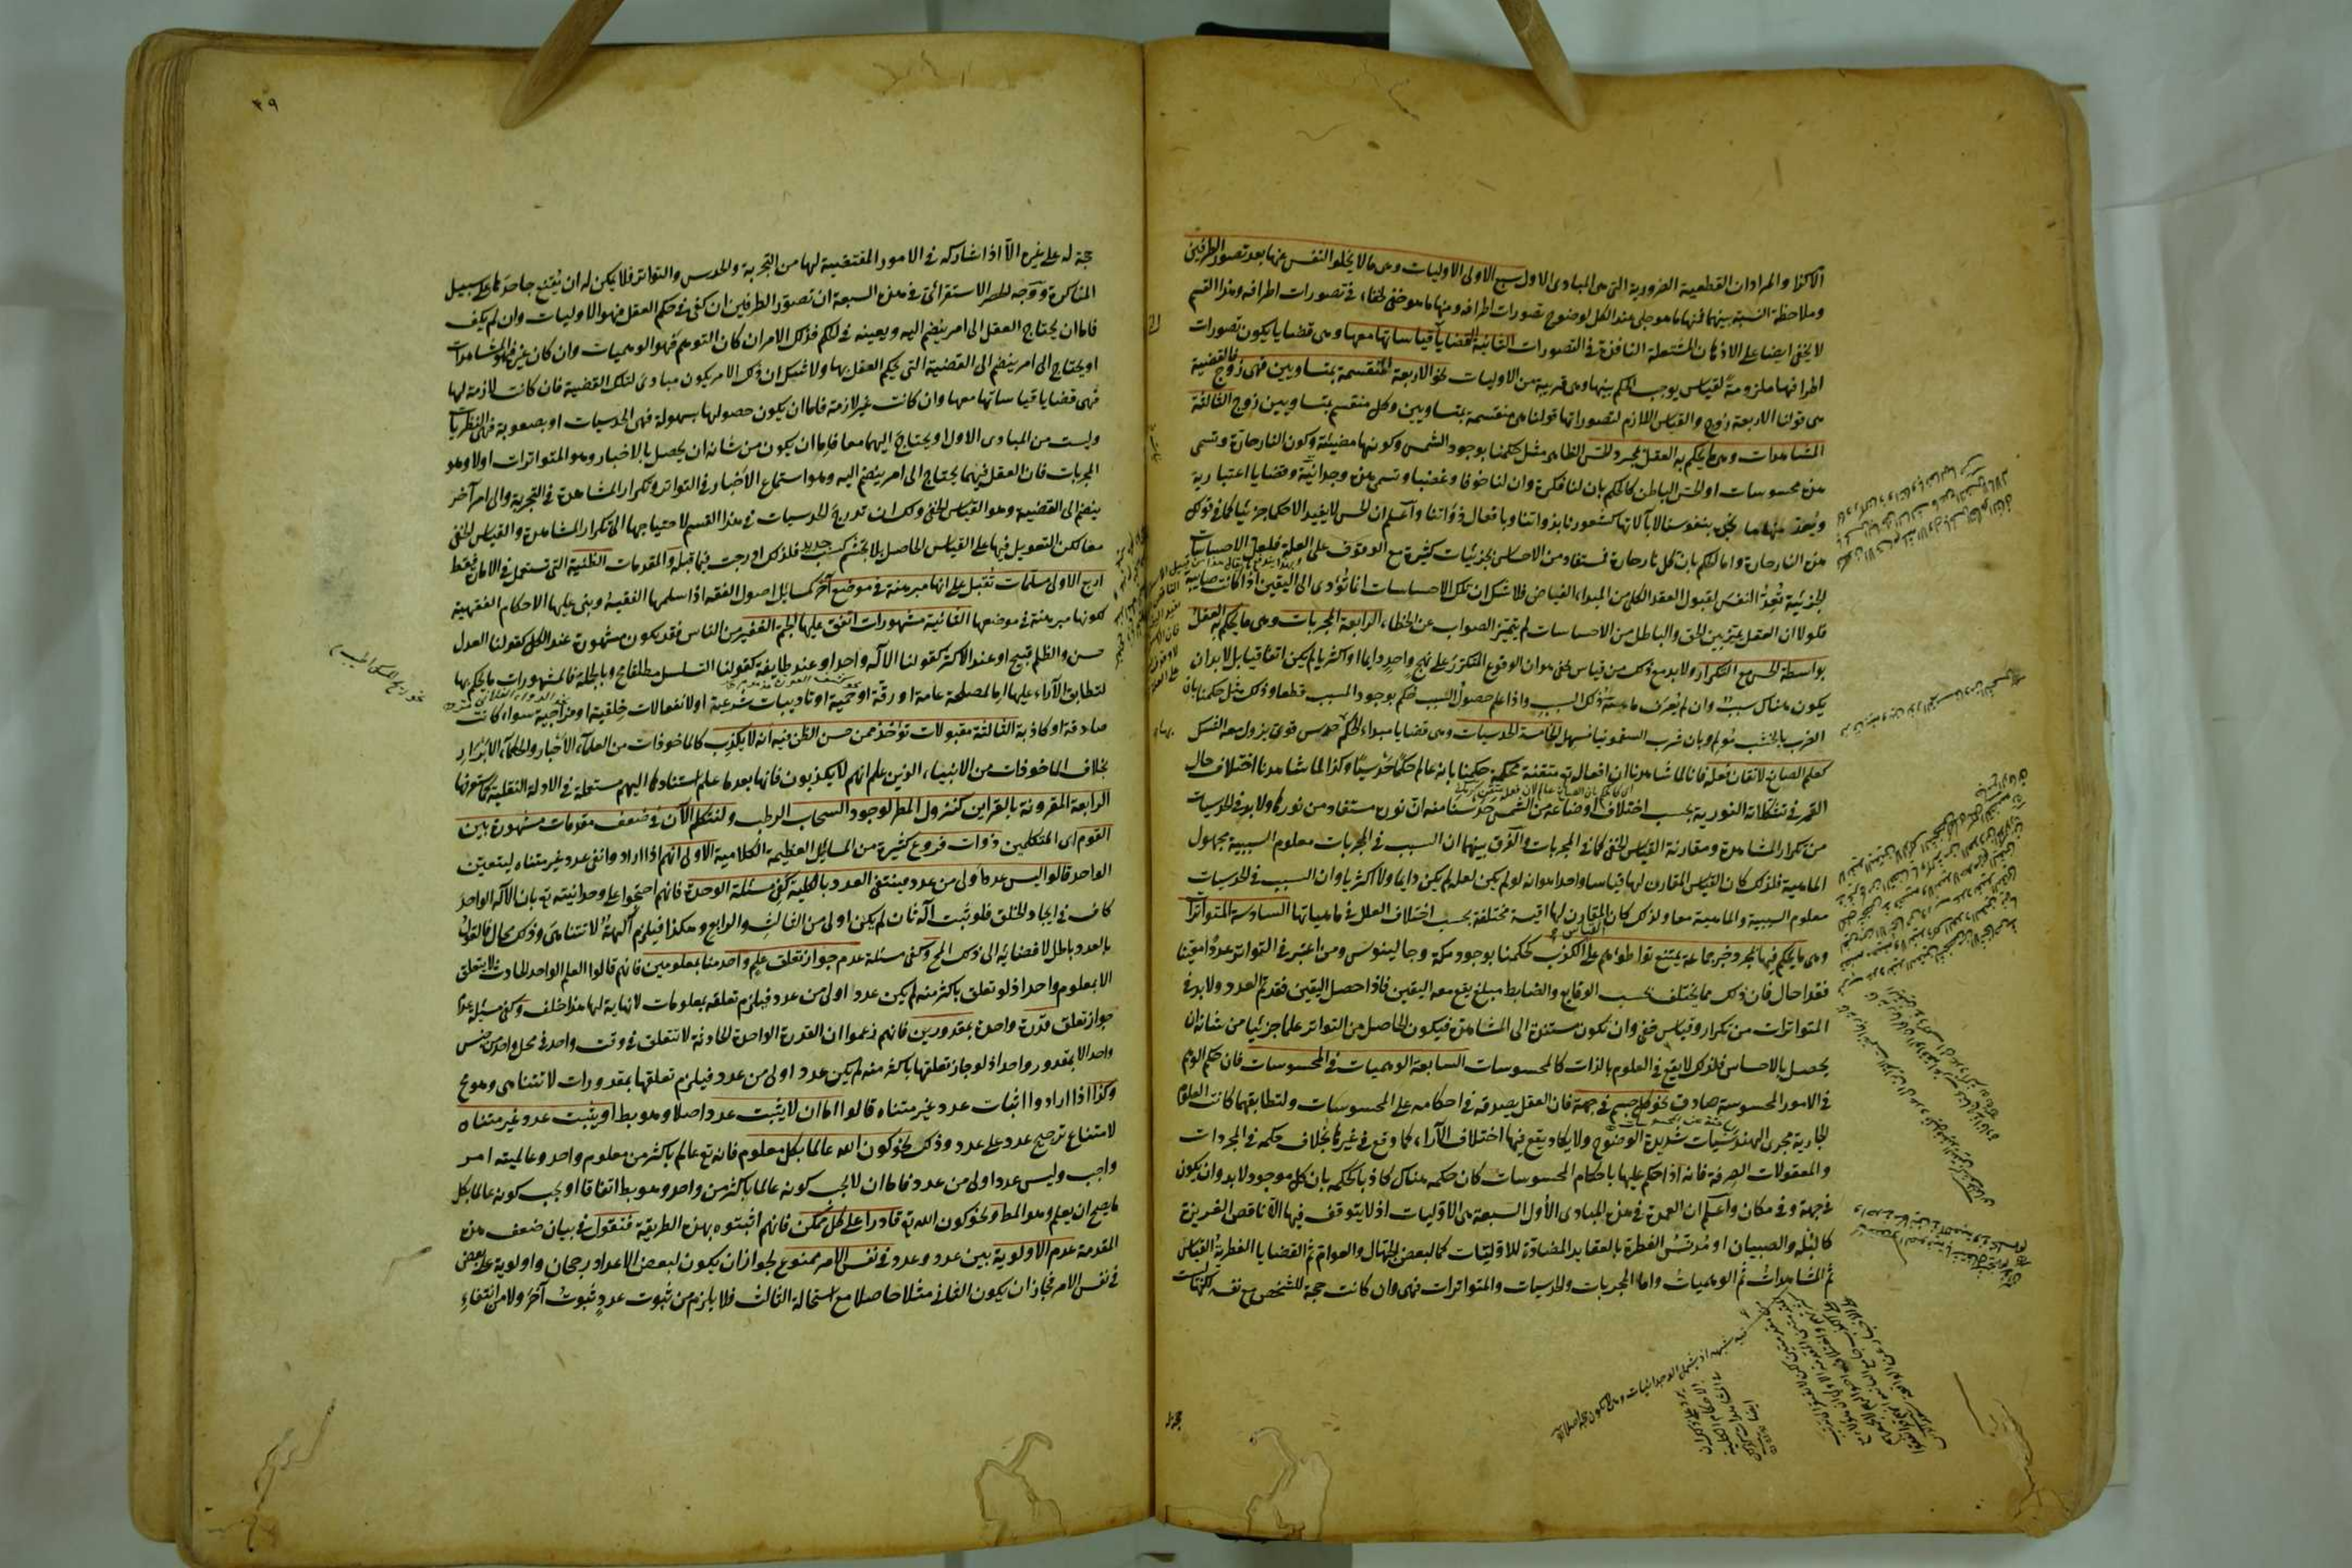 الاكفاء والمراد ان القطعية الضرورية التى هى المبادى الاول سبع الاولى الاوليات وهى ما لا يخلو النفس عنها بعد تصور الطرفين
وملاحظة النسبة بينهما فمنها ما هو جلى عند الكل لوضوح تصورات اطرافه ومنها ما هو خفى لخفاء فى تصورات اطرافه وهذا القسم
لا يخفى ايضا على الاذهان المشتعلة النافذة فى التصورات الثانية القضايا قياساتها معها وهى قضايا يكون تصورات
اطرافها ملزومة لقياس يوجب الحكم بينها وهى قريبة من الاوليات نحو الاربعة المنقسمة بمتساويين فهى زوج فالقضية
هى قولنا الاربعة زوج والقياس اللازم لتصوراتها قولنا هى منقسمة بمتساويين وكل منقسم بمتساويين زوج الثالثة
المشاهدات وهى ما يحكم به العقل بمجرد الحس الظاهر مثل حكمنا بوجود الشمس وكونها مضيئة وكون النار حارة وتسمى
هذه محسوسات او الحس الباطن كالحكم بان لنا فكرة وان لنا خوفا وغضبا وتسمى هذه وجدانية وقضايا اعتبارية
ويعد منها ما نجده بنفوسنا لا بآلاتها كشعورنا بذواتنا وبافعال ذواتنا واعلم ان الحس لا يفيد الا حكما جزئيا كما فى قولك
هذه النار حارة واما الحكم بان كل نار حارة فمستفاد من الاحساس بجزئيات كثيرة مع الوقوف على العلة فلعل الاحساسات
الجزئية تعد النفس لقبول العقد الكلى من المبداء الفياض فلا شك ان تلك الاحساسات انما تؤدى الى اليقين اذا كانت صائبة
فلولا ان العقل يميز بين الحق والباطل من الاحساسات لم يتميز الصواب عن الخطاء الرابعة المجربات وهى ما يحكم به العقل
بواسطة الحس مع التكرار ولا بد مع ذلك من قياس خفى هو ان الوقوع المتكرر على نهج واحد دايما او اكثريا لم يكن اتفاقيا بل لا بد ان
يكون هناك سبب وان لم يعرف ماهية ذلك السبب واذا علم حصول السبب حكم بوجود المسبب قطعا وذلك مثل حكمنا بان
الضرب بالخشب مؤلم وبان شرب السقمونيا مسهل الخامسة الحدسيات وهى قضايا مبداء الحكم حدس قوى يزول معه الشك
كعلم الصانع لاتقان فعله فانا لما شاهدنا ان افعاله تع متقنة محكمة حكمنا بانه عالم حكما حدسيا وكذا لما شاهدنا اختلاف حال
القمر فى تشكلاته النورية بحسب اختلاف اوضاعه من الشمس حدسنا منه ان نوره مستفاد من نورها ولا بد فى الحدسيات
من تكرار المشاهدة ومقارنة القياس الخفى كما فى المجربات والفرق بينهما ان السبب فى المجربات معلوم السببية مجهول
الماهية فلذلك كان القياس المقارن لها قياسا واحدا هو انه لو لم يكن لعلة لم يكن دايما ولا اكثريا وان السبب فى الحدسيات
معلوم السببية والماهية معا ولذلك كان المقارن لها اقيسة مختلفة بحسب اختلاف العلل فى ماهياتها السادسة المتواترات
وهى ما يحكم فيها بمجرد خبر جماعة يمتنع تواطؤهم على الكذب كحكمنا بوجود مكة وجالينوس ومن اعتبر فى التواتر عددا معينا
فقد احال فان ذلك مما يختلف بحسب الوقايع والضابط مبلغ يقع معه اليقين فاذا حصل اليقين فقد تم العدد ولا بد فى
المتواترات من تكرار وقياس خفى وان يكون مستندة الى المشاهدة فيكون الحاصل من التواتر علما جزئيا من شانه ان
يحصل بالاحساس فلذلك لا يقع فى العلوم بالذات كالمحسوسات السابعة الوهميات فى المحسوسات فان حكم الوهم
فى الامور المحسوسة صادق نحو كل جسم فى جهة فان العقل يصدقه فى احكامه على المحسوسات ولتطابقها كانت العلوم
الجارية مجرى الهندسيات شديدة الوضوح ولا يكاد يقع فيها اختلاف الآراء كما وقع فى غيرها بخلاف حكمه فى المجردات
والمعقولات الصرفة فانه اذا حكم عليها باحكام المحسوسات كان حكمه هناك كاذبا كحكمه بان كل موجود لا بد وان يكون
فى جهة وفى مكان واعلم ان العمدة فى هذه المبادى الاول السبعة هى الاوليات اذ لا يتوقف فيها الا ناقص الغريزة
كالبله والصبيان او مدنس الفطرة بالعقايد المضادة للاوليات كما لبعض الجهال والعوام ثم القضايا الفطرية القياس
ثم المشاهدات ثم الوهميات واما المجربات والحدسيات والمتواترات فهى وان كانت حجة للشخص مع نفسه لكنها ليست
حجة
٤٩
حجة له على غيره الا اذا شاركه فى الامور المقتضية لها من التجربة والحدس والتواتر فلا يمكن له ان يقنع جاحدها على سبيل
المناكرة ووجه الحصر الاستقرائى فى هذه السبعة ان تصور الطرفين ان كفى فى حكم العقل فهو الاوليات وان لم يكف
فاما ان يحتاج العقل الى امر ينضم اليه ويعينه فى الحكم فذلك الامر ان كان التوهم فهو الوهميات وان كان غيره فهو المشاهدات
او يحتاج الى امر ينضم الى القضية التى يحكم العقل بها ولا شك ان ذلك الامر يكون مبادى لتلك القضية فان كانت لازمة لها
فهى قضايا قياساتها معها وان كانت غير لازمة فاما ان يكون حصولها بسهولة فهى الحدسيات او بصعوبة فهى النظريات
وليست من المبادى الاول او يحتاج اليهما معا فاما ان يكون من شانه ان يحصل بالاخبار وهو المتواترات اولا وهو
المجربات فان العقل فيهما يحتاج الى امر ينضم اليه وهو استماع الاخبار فى التواتر وتكرار المشاهدة فى التجربة والى امر آخر
ينضم الى القضية وهو القياس الخفى ولك ان تدرج الحدسيات فى هذا القسم لاحتياجها الى تكرار المشاهدة والقياس الخفى
معا لكن التعويل فيها على القياس الحاصل بلا تجشم كسب جديد فلذلك ادرجت فيما قبله والمقدمات الظنية التى تستعمل فى الامارة فقط
اربع الاولى مسلمات تقبل على انها مبرهنة فى موضع آخر كمسائل اصول الفقه اذا سلمها الفقيه وبنى عليها الاحكام الفقهية
لكونها مبرهنة فى موضعها الثانية مشهورات اتفق عليها الجم الغفير من الناس فقد يكون مشهورة عند الكل كقولنا العدل
حسن والظلم قبيح او عند الاكثر كقولنا الاله واحد او عند طايفة كقولنا التسلسل مطلقا مح وبالجملة فالمشهورات ما يحكم بها
لتطابق الآراء عليها اما لمصلحة عامة او رقة او حمية او تاديبات شرعية او لانفعالات خلقية او مزاجية سواء كانت
صادقة او كاذبة الثالثة مقبولات تؤخذ ممن حسن الظن فيه انه لا يكذب كالماخوذات من العلماء الاخيار والحكماء الابرار
بخلاف الماخوذات من الانبياء الذين علم انهم لا يكذبون فانها بعد ما علم استنادها اليهم مستعملة فى الادلة النقلية كما ستعرفها
الرابعة المقرونة بالقراين كنزول المطر لوجود السحاب الرطب ولنتكلم الآن فى ضعف مقدمات مشهورة بين
القوم اى المتكلمين ذوات فروع كثيرة من المسائل العظيمة الكلامية الاولى انهم اذا ارادوا نفى عدد غير متناه ليتعين
الواحد قالوا ليس عدد اولى من عدد فينتفى العدد بالكلية كفى مسئلة الوحدة فانهم احتجوا على وحدانيته تع بان الاله الواحد
كاف فى ايجاد الخلق فلو ثبت اله ثان لم يكن اولى من الثالث والرابع وهكذا فيلزم آلهة لا تتناهى وذلك محال فالقول
بالعدد باطل لافضائه الى ذلك المح وكفى مسئلة عدم جواز تعلق علم واحد منا بمعلومين فانهم قالوا العلم الواحد الحادث لا يتعلق
الا بمعلوم واحد اذ لو تعلق باكثر منه لم يكن عدد اولى من عدد فيلزم تعلقه بمعلومات لا نهاية لها هذا خلف وكفى مسئلة عدم
جواز تعلق قدرة واحدة بمقدورين فانهم زعموا ان القدرة الواحدة الحادثة لا تتعلق فى وقت واحد فى محل واحد من جنس
واحد الا بمقدور واحد اذ لو جاز تعلقها باكثر منه لم يكن عدد اولى من عدد فيلزم تعلقها بمقدورات لا تتناهى وهو مح
وكذا اذا ارادوا اثبات عدد غير متناه قالوا اما ان لا يثبت عدد اصلا وهو بط او يثبت عدد غير متناه
لامتناع ترجيح عدد على عدد وذلك نحو كون الله عالما بكل معلوم فانه تع عالم باكثر من معلوم واحد وعالميته امر
واجب وليس عدد اولى من عدد فاما ان لا يجب كونه عالما باكثر من واحد وهو بط اتفاقا او يجب كونه عالما بكل
ما يصح ان يعلم وهو المط ونحو كون الله تع قادرا على كل ممكن فانهم اثبتوه بهذه الطريقة فنقول فى بيان ضعف هذه
المقدمة عدم الاولوية بين عدد وعدد فى نفس الامر ممنوع لجواز ان يكون لبعض الاعداد رجحان واولوية على بعض
فى نفس الامر فجاز ان يكون الثانى مثلا حاصلا مع استحالة الثالث فلا يلزم من ثبوت عدد ثبوت آخر ولا من انتفاء